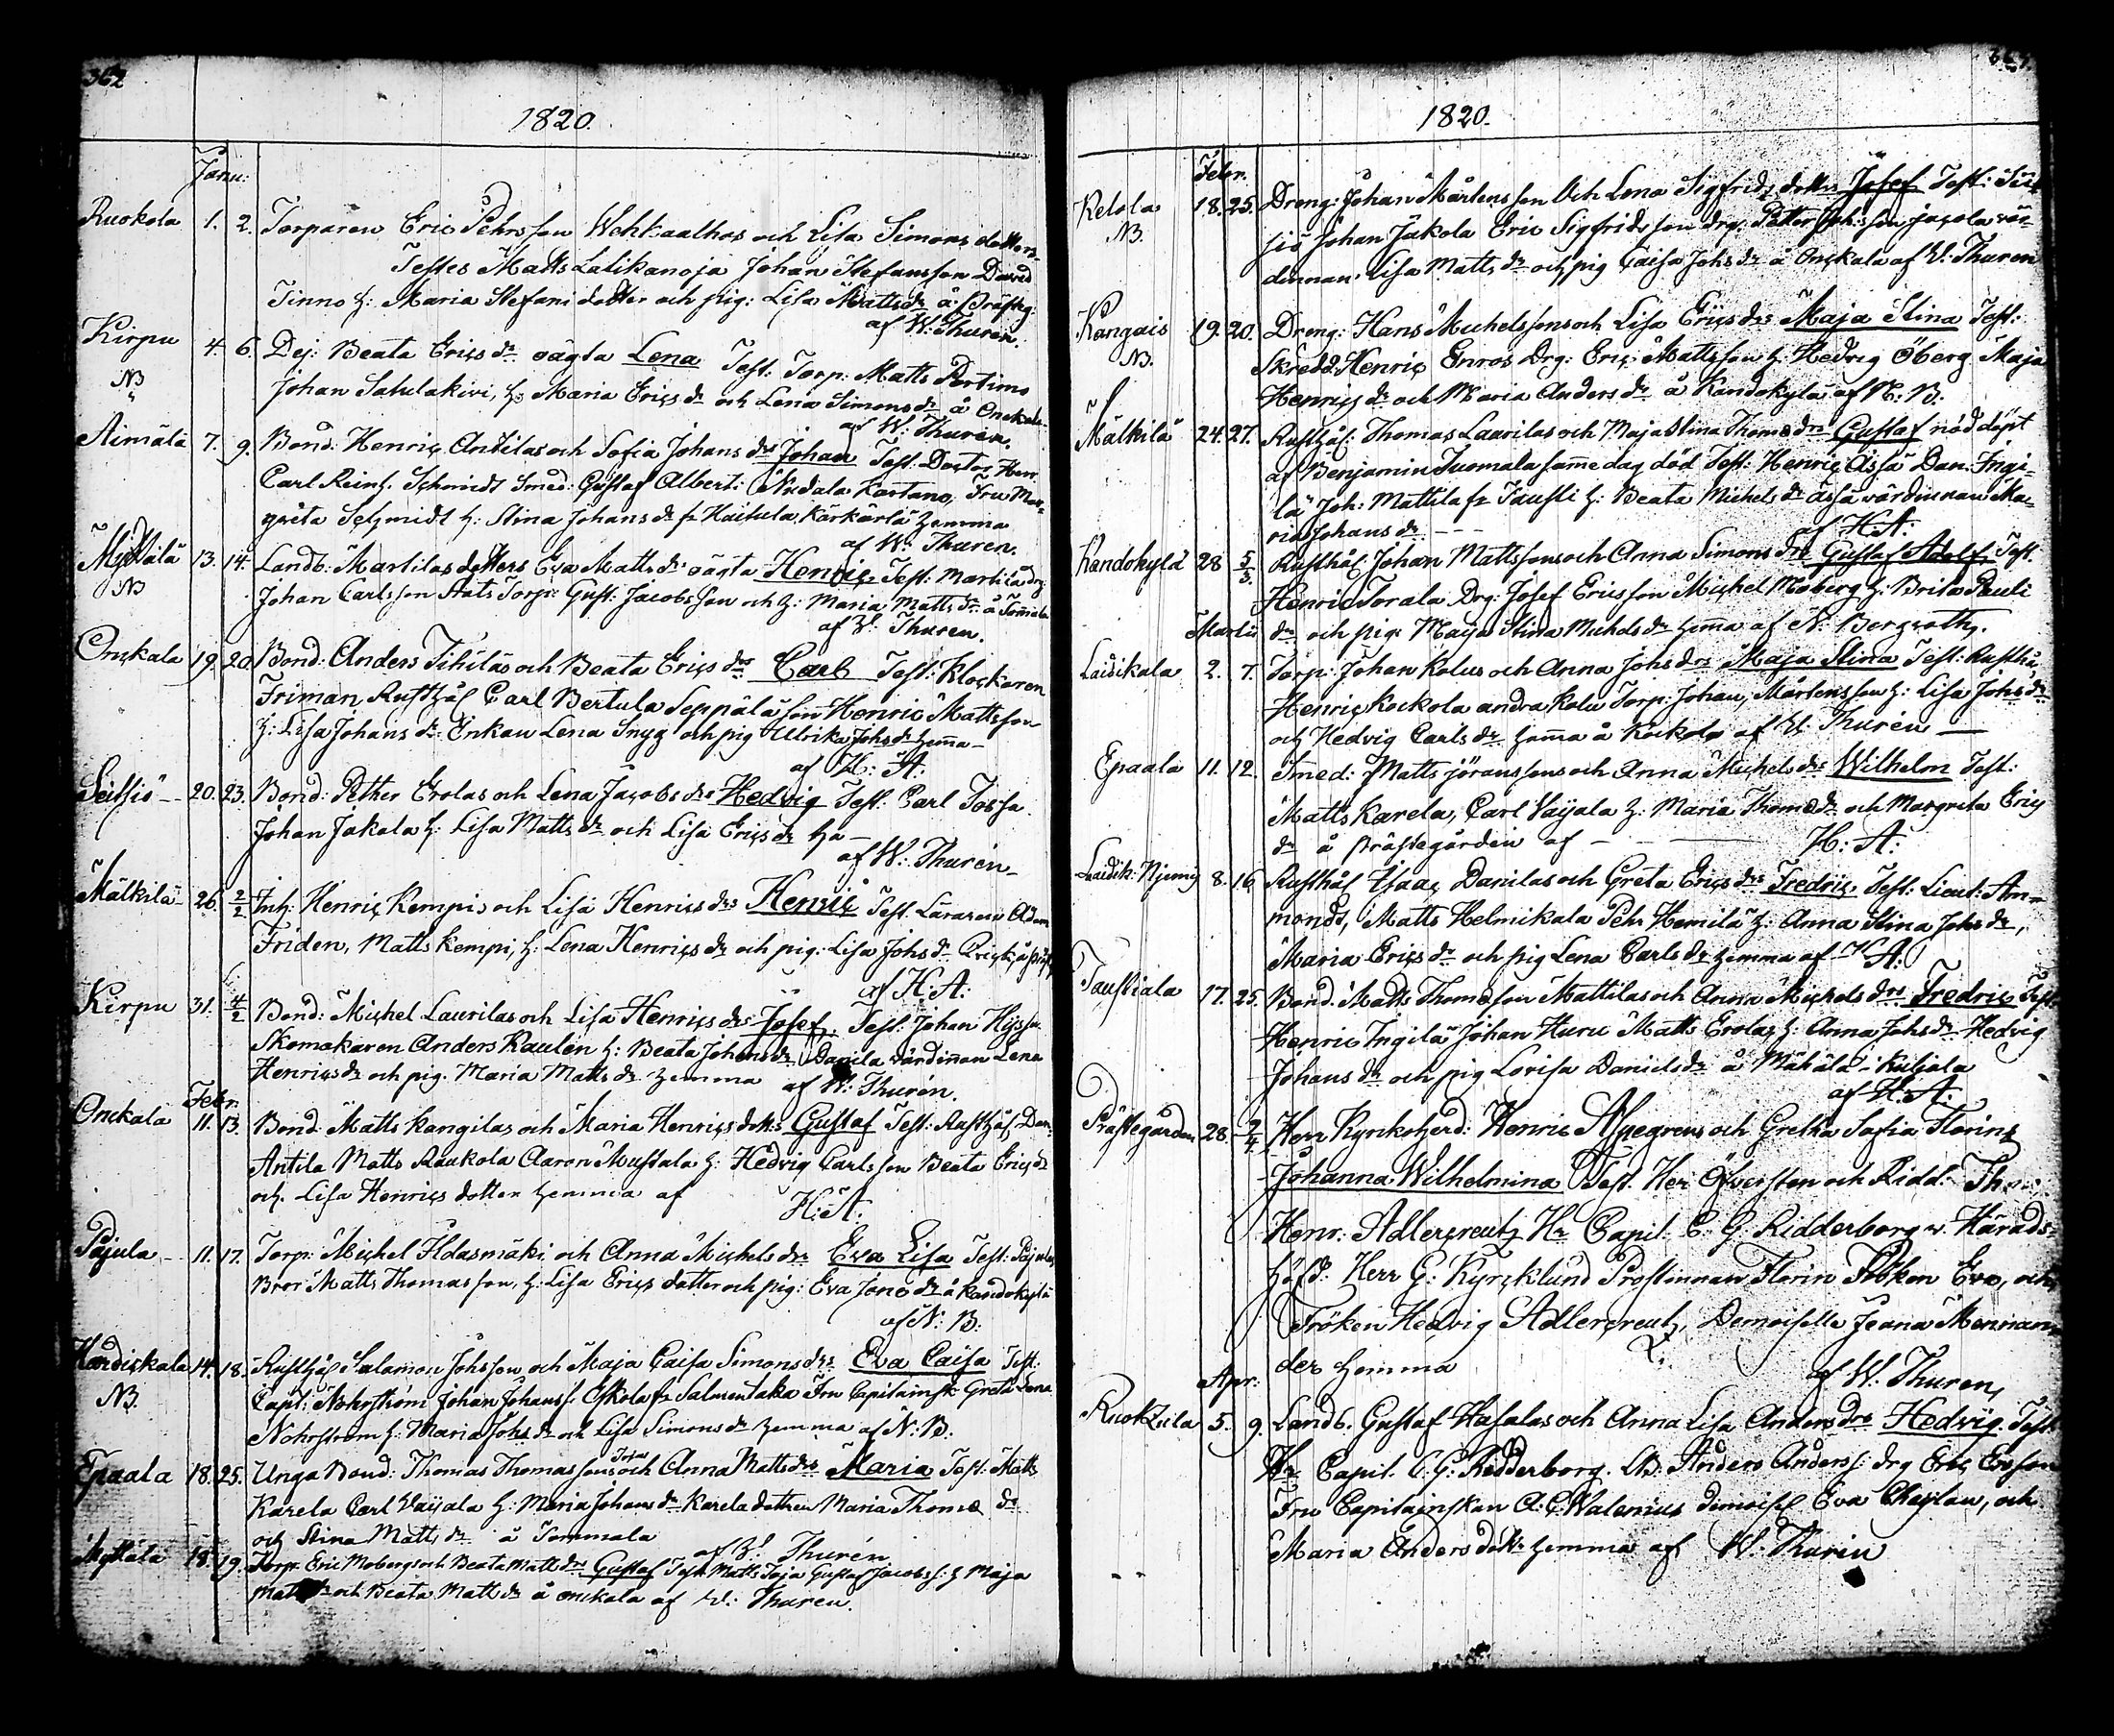 362
1820.
Janu:
Ruokola 1. 2. Torparen Eric Pehrsson Wehkaalhos och Lisa Simons dotters
Testes Matts Lalikanoja Johan Stefansson David
Tinno h: Maria Stefani dotter och pig: Lisa Mattsdr å Prästg:
af W: Thuren.
Kirpu NB 4. 6. Pig: Beata Ericsdr oägta Lena Test: Torp: Matts Portimo
Johan Satulakivi, h: Maria Ericsdr och Lena Simonsdr å Onckala
af W: Thuren.
Aimälä 7. 9. Bond: Henric Antilas och Sofia Johansdrs Johan Test: Doctor Herr
Carl Reinh. Schmidt Smed: Gustaf Albert: Kartano, Fru Mar-
greta Schmidt h: Stina Johansdr fr Haitula Kärkärlä hemma
af W: Thuren.
Myttälä NB 13. 14. Landb: Martilas dotters Eva Mattsdrs oägta Henric Test: Martila drg:
Johan Carlsson Torp: Gust: Jacobsson och h: Maria Mattsdr å Tommala
af W: Thuren.
Onckala 19. 20. Bond: Anders Tihilas och Beata Ericsdrs Carl Test: Klockaren
Friman Rusthål Carl Bertula Seppälä son Henric Mattsson
h: Lisa Johansdr Enkan Lena Snyg och pig Ulrika Johsdr hemma
af H: A:
Seitsiö 20. 23. Bond: Petter Erolas och Lena Jacobsdrs Hedvig Test: Carl Jossa
Johan Jakala h: Lisa Mattsdr och Lisa Ericsdr ha
af W: Thurén
Mälkilä 26. 2/2 Inh: Henric Kempis och Lisa Henricsdrs Henric Test. Läraren Adam
Friden, Matts Kempi, h: Lena Henricsdr och pig: Lisa Johsdr
af H: A:
Kirpu 31. 4/2 Bond: Michel Laurilas och Lisa Henricsdrs Josef. Test: Johan Hyssa
Skomakaren Anders Raulen h: Beata Johansdr Danila värdinnan Lena
Henricsdr och pig. Maria Mattsdr hemma af W: Thurén.
Febr:
Onckala 11. 13. Bond: Matts Kangilas och Maria Henrics dotts Gustaf Test: Rusthål Dan:
Antila Matts Raukola Aaron Mustala h: Hedvig Carlsson Beata Ericsdr
och Lisa Henrics dotter hemma af H: A:
Pajula 11. 17. Torp: Michel Hdasmäki och Anna Michelsdrs Eva Lisa Test: Pajulas
Bror Matts Thomasson, h: Lisa Erics dotter och pig: Eva Jonædr å Kandokylä
af N: B:
Kardickala NB. 14. 18. Rusthål Salamon Johsson och Maja Caisa Simonsdrs Eva Caisa Test:
Capt: Nohrström Johan Johanss: Eskola fr Salmentaka Fru Capitainsk: Greta Lena
Nohrström h: Maria Johsdr och Lisa Simonsdr hemma af N: B.
Epaala 18. 25. Unga Bond: Thomas Thomassons och Anna Mattsdrs Maria Test: Matts
Karela Carl Vayala h: Maria Johansdr Karela dottren Maria Thomædr
och Stina Mattsdr å Tommala
af W: Thurén
Myttälä 18. 19. Torp: Eric Mobergs och Beata Mattsdrs Gustaf Test: Matts Toja Gustaf Jacobss: h: Maja
Matts dr och Beata Mattsdr å Onckala af W: Thuren.
1820.
Febr.
Retola NB. 18. 25. Dreng: Johan Mårtensson Och Lena Sigfrids dotters Josef Test:
Johan Jakola Eric Sigfridsson drg: Petter Johsson Jacola vär-
dinnan Lisa Mattsdr och pig Caisa Johsdr å Onckala af W: Thuren
Kangais NB. 19. 20. Dreng: Hans Michelssons och Lisa Ericsdrs Maja Stina Test:
Skredd: Henric Enros Drg: Eric Mattsson h: Hedvig Öberg Maja
Henricsdr och Maria Andersdr å Kandokylä af N: B.
Mälkilä 24. 27. Rusthål: Thomas Laurilas och Maja Stina Thomædrs Gustaf nöddöpt
af Benjamin Tuomala samme dag död Test: Henric Ässä Dan: Ingi-
lä Joh: Mattila fr Tausti h: Beata Michelsdr Ässä värdinnan Ma-
ria Johansdr
af H: A:
Kandokylä 28 5/3. Rusthål Johan Mattssons och Anna Simonsdrs Gustaf Adolf. Test:
Henric Torala Drg: Josef Ericsson Michel Moberg h: Brita Pauli
Martii
dr och pig: Maja Stina Michelsdr hemma af N: Bergroth.
Laidikala 2. 7. Torp: Johan Kolus och Anna Johsdrs Maja Stina Test: Rusthål
Henric Kockola andra Kolu Torp: Johan Mårtensson h: Lisa Johsdr
och Hedvig Carlsdr hemma å Kockola af W: Thurén
Epaala 11. 12. Smed: Matts Jöranssons och Anna Michelsdrs Wilhelm Test:
Matts Karela, Carl Vayala h: Maria Thomædr och Margreta Erics
dr å Prästegården af H: A:
Laidik: Njemis 8. 16. Rusthål Isaac Danilas och Greta Ericsdrs Fredric Test: Lieut: Am-
mondt, Matts Helmikala Pehr Hemilä h: Anna Stina Johsdr,
Maria Ericsdr och pig Lena Carlsdr hemma af H: A:
Taustiala 17. 25. Bond: Matts Thomæson Mattilas och Anna Michelsdrs Fredric Test:
Henric Ingilä Johan Huru Matts Erolas h: Anna Johsdr Hedvig
Johansdr och pig Lovisa Danielsdr å Mähälä-Kuljala
af H: A:
Prästegården 28. 2/4 Herr Kyrckoherd: Henric Alnegrens och Gretha Sofia Florins
Johanna Wilhelmina Test. Herr Öfversten och Ridd:
Henr: Adlercreutz Hr Capit. C. G. Ridderborg v. Härads-
höfd: Herr G: Kyrcklund Prostinnan Florin Fröken Eva, och
Fröken Hedvig Adlercreutz, Demoiselle Jeana Mennan-
der hemma
af W. Thuren,
Apr:
Ruokzula 5. 9. Landb. Gustaf Hasalas och Anna Lisa Andersdrs Hedvig. Test:
Hr Capit. C. G: Ridderborg. Anders Anderss: drg Eric Ersson
Fru Capitainskan A: C: Walenius demoisel Eva Chaplan, och
Maria Anders dottr hemma af W: Thurén